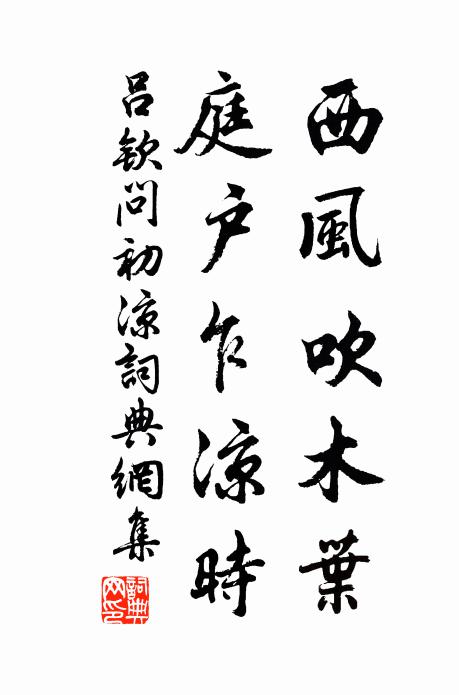 西風吹木葉
庭戶乍涼時
呂欽問初涼詞典網集
詞典
網印